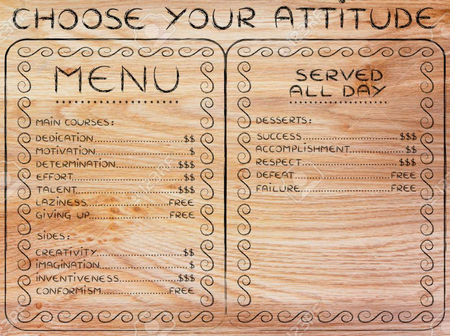 CHOOSE YOUR ATTITUDE
MENU
MAIN COURSES:
DEDICATION......................$$
MOTIVATION......................$
DETERMINATION...............$$$
EFFORT..............................$$
TALENT..............................$$$
LAZINESS..........................FREE
GIVING UP........................FREE
SIDES:
CREATIVITY.......................$$
IMAGINATION....................$
INVENTIVENESS................$$$
CONFORMISM...................FREE
SERVED
ALL DAY
DESSERTS:
SUCCESS...........................$$$
ACCOMPLISHMENT............$$
RESPECT...........................$$$
DEFEAT.............................FREE
FAILURE............................FREE